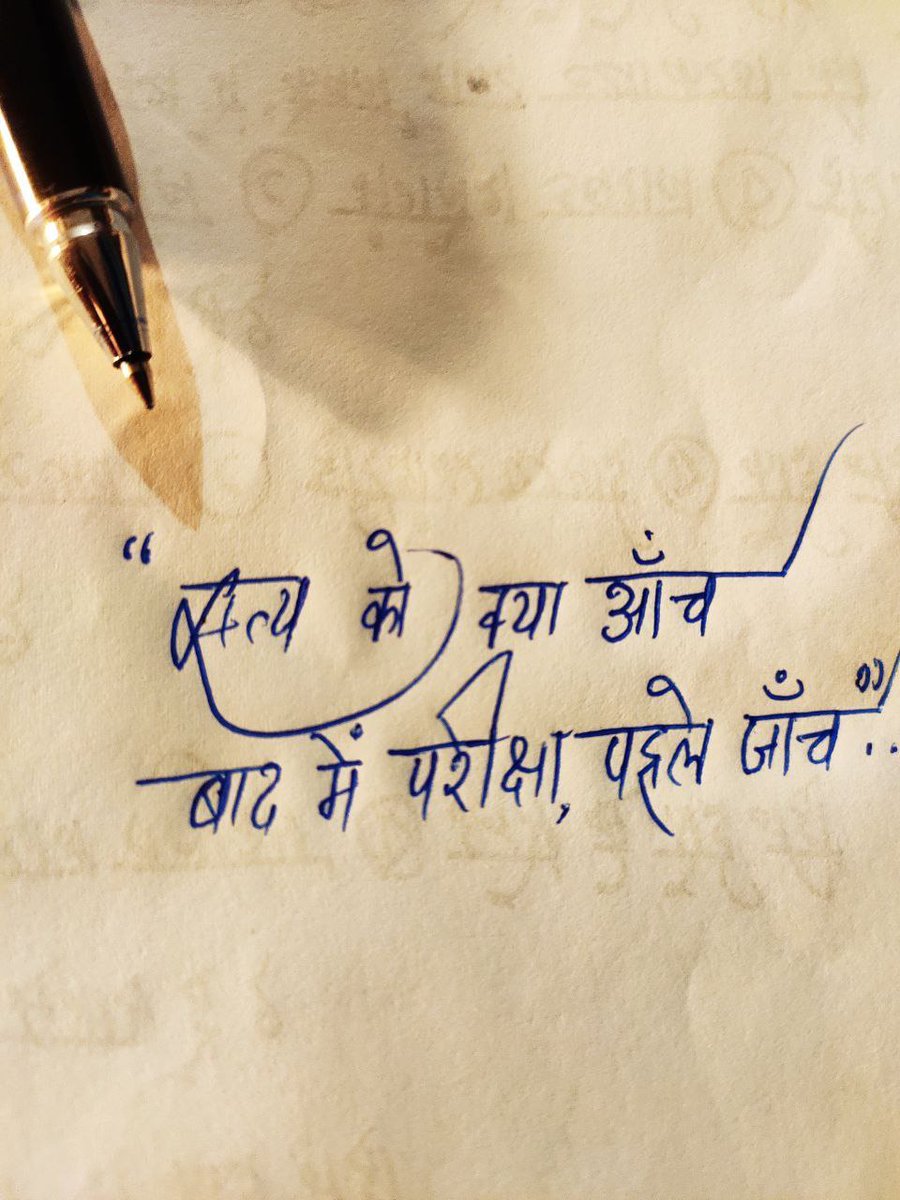 “सत्य को क्या आँच
बाद में परीक्षा, पहले जाँच”..